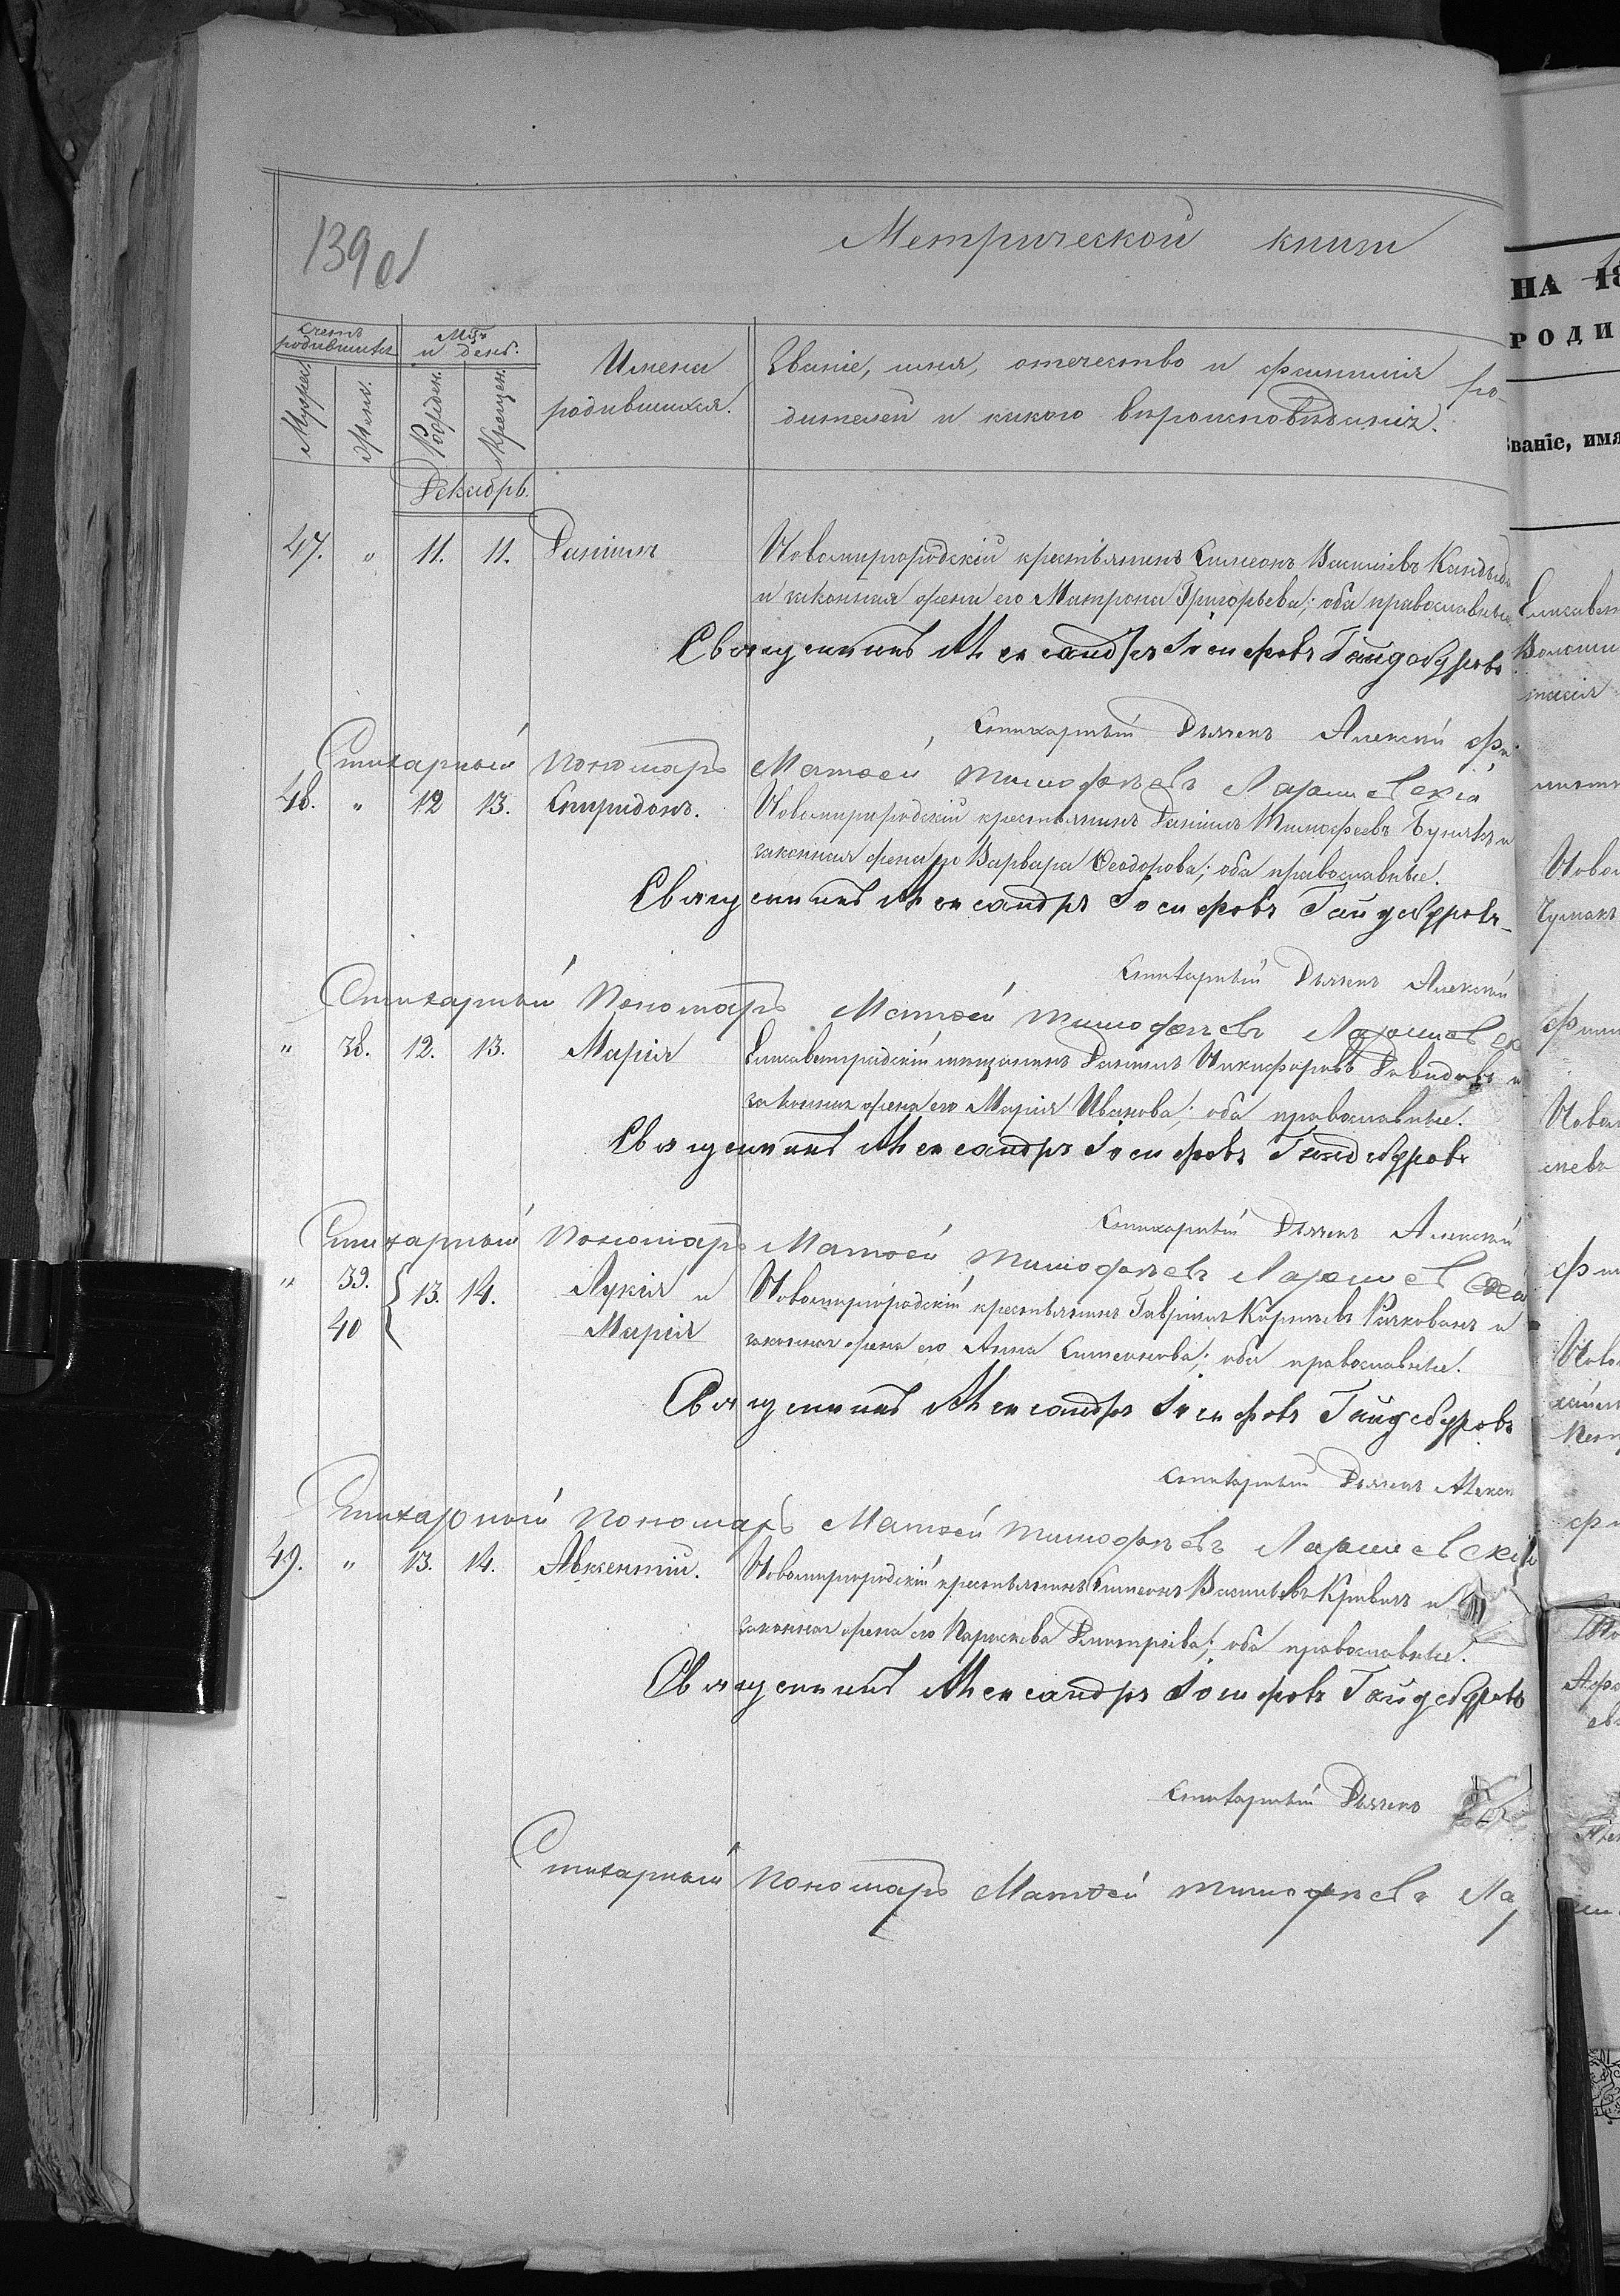 139 об
Метрической книги
Счетъ родившихся
Мцъ и день.
Имена родившихся.
Званіе, имя, отчество и фамилія ро-
дителей и какого вѣроисповѣданія.
Мужск.
Женс.
Рожден.
Крещен.
Декабрь.
47. " 11. 11. Даніилъ Новомиргородскій крестьянинъ Симеонъ Василіевъ
и законная жена его Матрона Григорьева; оба православные.
Священникъ Александръ Іосифовъ Гайдебуровъ
Стихарный Дьячекъ Алексѣй
Стихарный Пономарь Матѳей Тимофѣевъ
48. " 12 13. Спиридонъ. Новомиргородскій крестьянинъ Даніилъ Тимофеевъ и
законная жена его Варвара Ѳеодорова; оба православные.
Священникъ Александръ Іосифовъ Гайдебуровъ
Стихарный Дьячекъ Алексѣй
Стихарный Пономарь Матѳей Тимофѣевъ
" 38. 12. 13. Марія Елисаветградскій мещанинъ Даніилъ Никифоровъ Давидовъ и
законная жена его Марія Иванова; оба православные.
Священникъ Александръ Іосифовъ Гайдебуровъ
Стихарный Дьячекъ Алексѣй
Стихарный Пономарь Матѳей Тимофѣевъ
" 39. 13. 14. Лукія и Новомиргородскій крестьянинъ Гавріилъ и
40 Марія законная жена его Анна Симеонова; оба православные.
Священникъ Александръ Іосифовъ Гайдебуровъ
Стихарный Дьячекъ Алекс
Стихарный Пономарь Матѳей Тимофѣевъ
49. " 13. 14. Авксентій. Новомиргородскій крестьянинъ Симеонъ Василіевъ и
законная жена его Параскева Димитріева; оба православные.
Священникъ Александръ Іосифовъ Гайдебуровъ
Стихарный Дьячекъ
Стихарный Пономарь Матѳей Тимофѣевъ
НА 18
РОДИ
Званіе, имя